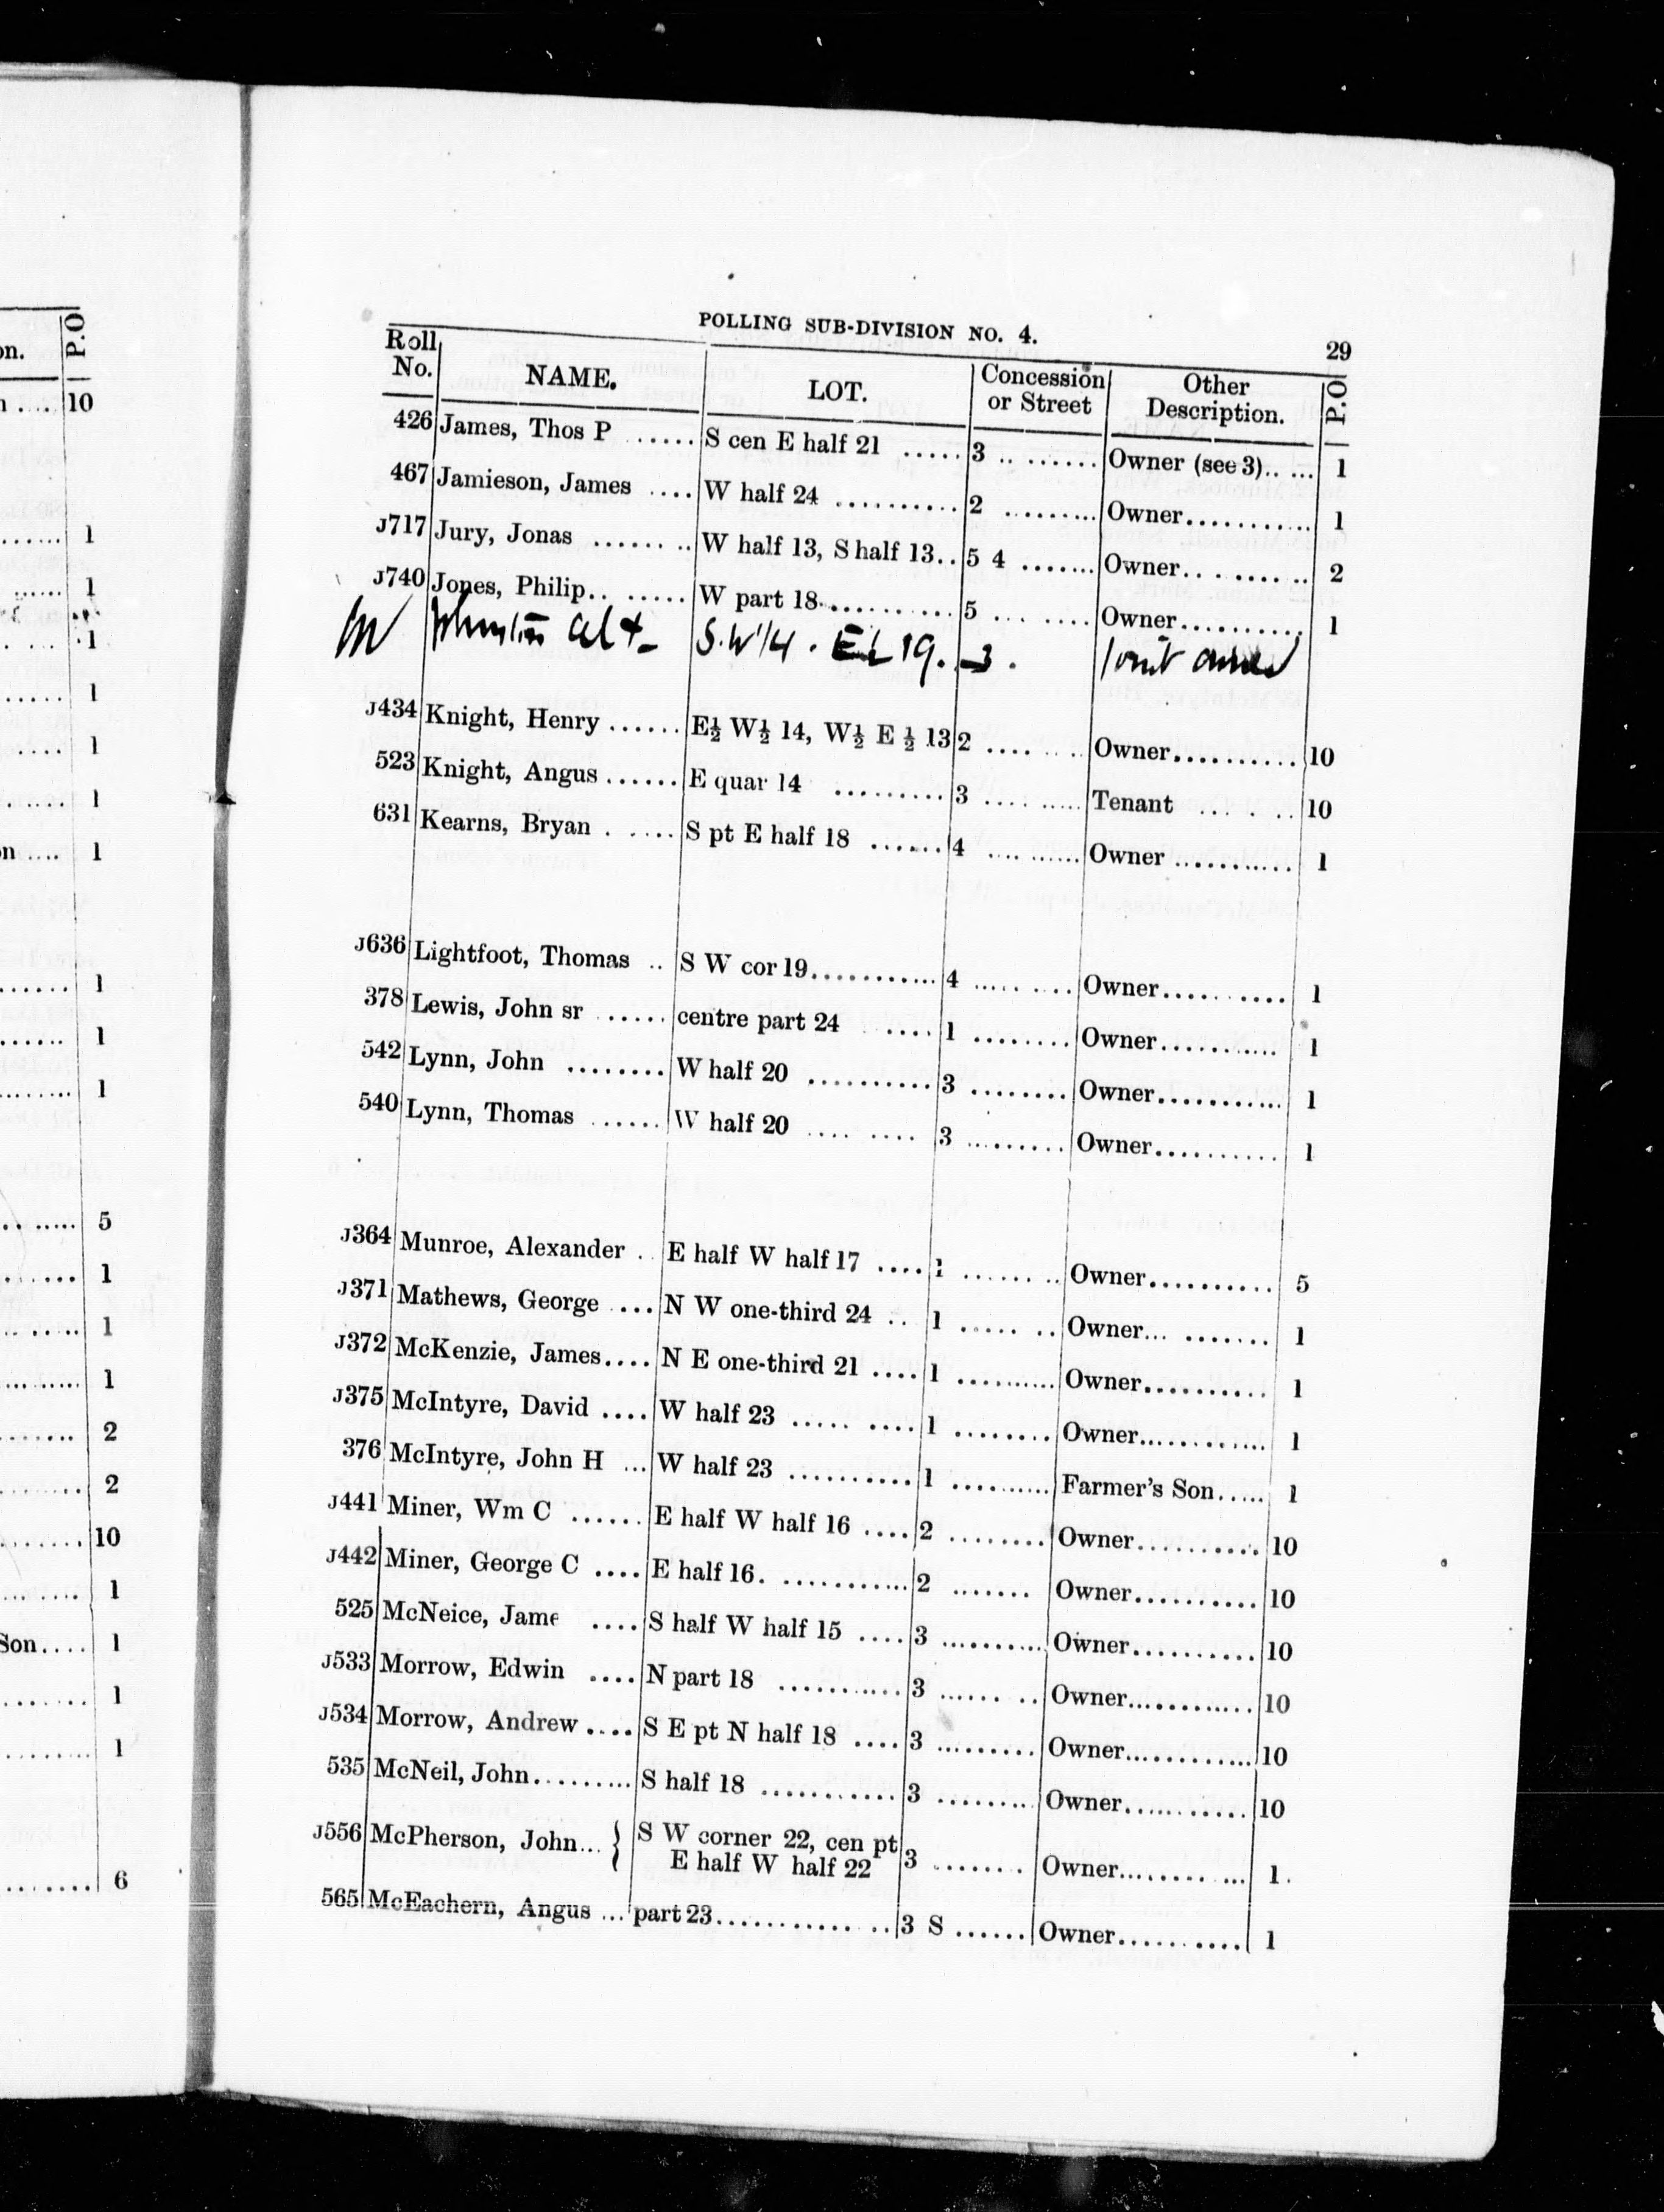 on.
P.O
10
1
1
1
1
1
1
n .... 1
1
1
1
5
1
1
1
2
2
10
1
Son.... 1
1
1
6
POLLING SUB-DIVISION NO. 4. 29
Roll No. NAME. LOT. Concession or Street Other Description. P.O
426 James, Thos P ...... S cen E half 21 ..... 3 .. ...... Owner (see 3).. ... 1
467 Jamieson, James .... W half 24 .......... 2 ......... Owner........... 1
J717 Jury, Jonas ....... .. W half 13, S half 13.. 5 4 ....... Owner.. . ..... .. 2
J740 Jones, Philip.. ...... W part 18........... 5 ... ...... Owner.......... 1
S.W 1/4 . E 19. 3.
J434 Knight, Henry ...... E½ W½ 14, W½ E ½ 13 2 .... .. .. Owner.......... 10
523 Knight, Angus ...... E quar 14 ......... 3 .... ..... Tenant ... . .. 10
631 Kearns, Bryan . ..... S pt E half 18 ...... 4 .... ...... Owner ........... 1
J636 Lightfoot, Thomas .. S W cor 19........... 4 ..... .... Owner.......... 1
378 Lewis, John sr ..... centre part 24 .... 1 ........ Owner........... 1
542 Lynn, John ........ W half 20 .......... 3 ........ Owner........... 1
540 Lynn, Thomas ...... W half 20 .... .... 3 ......... Owner.......... 1
J364 Munroe, Alexander . . E half W half 17 .... 1 ....... .. Owner.......... 5
J371 Mathews, George ... N W one-third 24 .. 1 ..... .. Owner... ....... 1
J372 McKenzie, James.... N E one-third 21 .... 1 .......... Owner.......... 1
J375 McIntyre, David .... W half 23 ..... .... 1 ........ Owner............ 1
376 McIntyre, John H ... W half 23 .......... 1 .......... Farmer's Son..... 1
J441 Miner, Wm C ...... E half W half 16 .... 2 ........ Owner.......... 10
J442 Miner, George C .... E half 16. ........... 2 ....... Owner.......... 10
525 McNeice, Jame .... S half W half 15 .... 3 .......... Owner.......... 10
J533 Morrow, Edwin .... N part 18 ........... 3 ...... .. Owner........... 10
J534 Morrow, Andrew .... S E pt N half 18 .... 3 ......... Owner........... 10
535 McNeil, John......... S half 18 ........... 3 ........ Owner........... 10
J556 McPherson, John... { S W corner 22, cen pt
E half W half 22 3 ........ Owner.......... ... 1.
565 McEachern, Angus ... part 23............. .. 3 S ...... Owner.......... 1